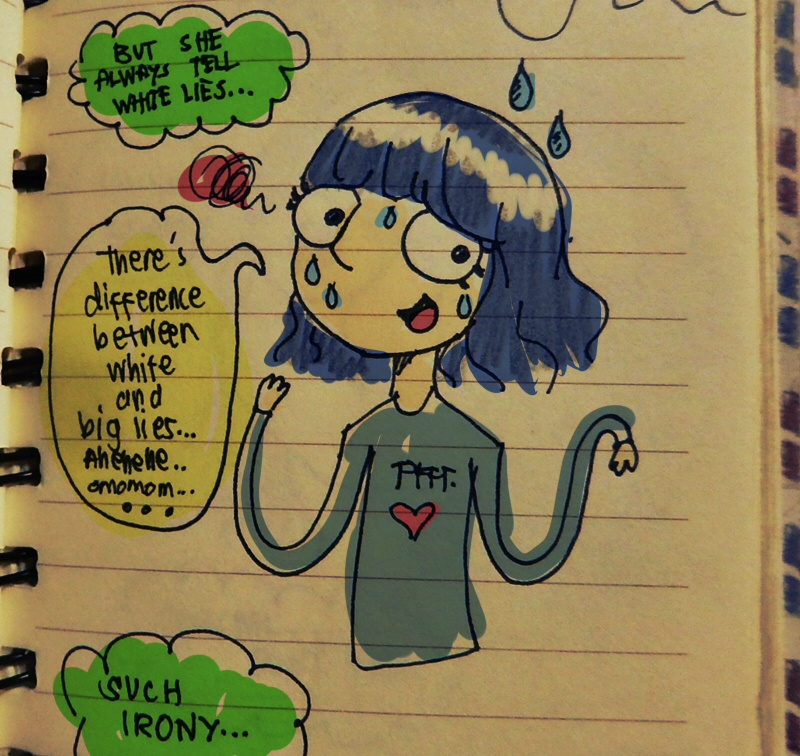 BUT SHE
ALWAYS TELL
WHITE LIES...
there's
difference
between
white
and
big lies...
Ahehehe..
omomom...
...
PFFT.
SUCH
IRONY...